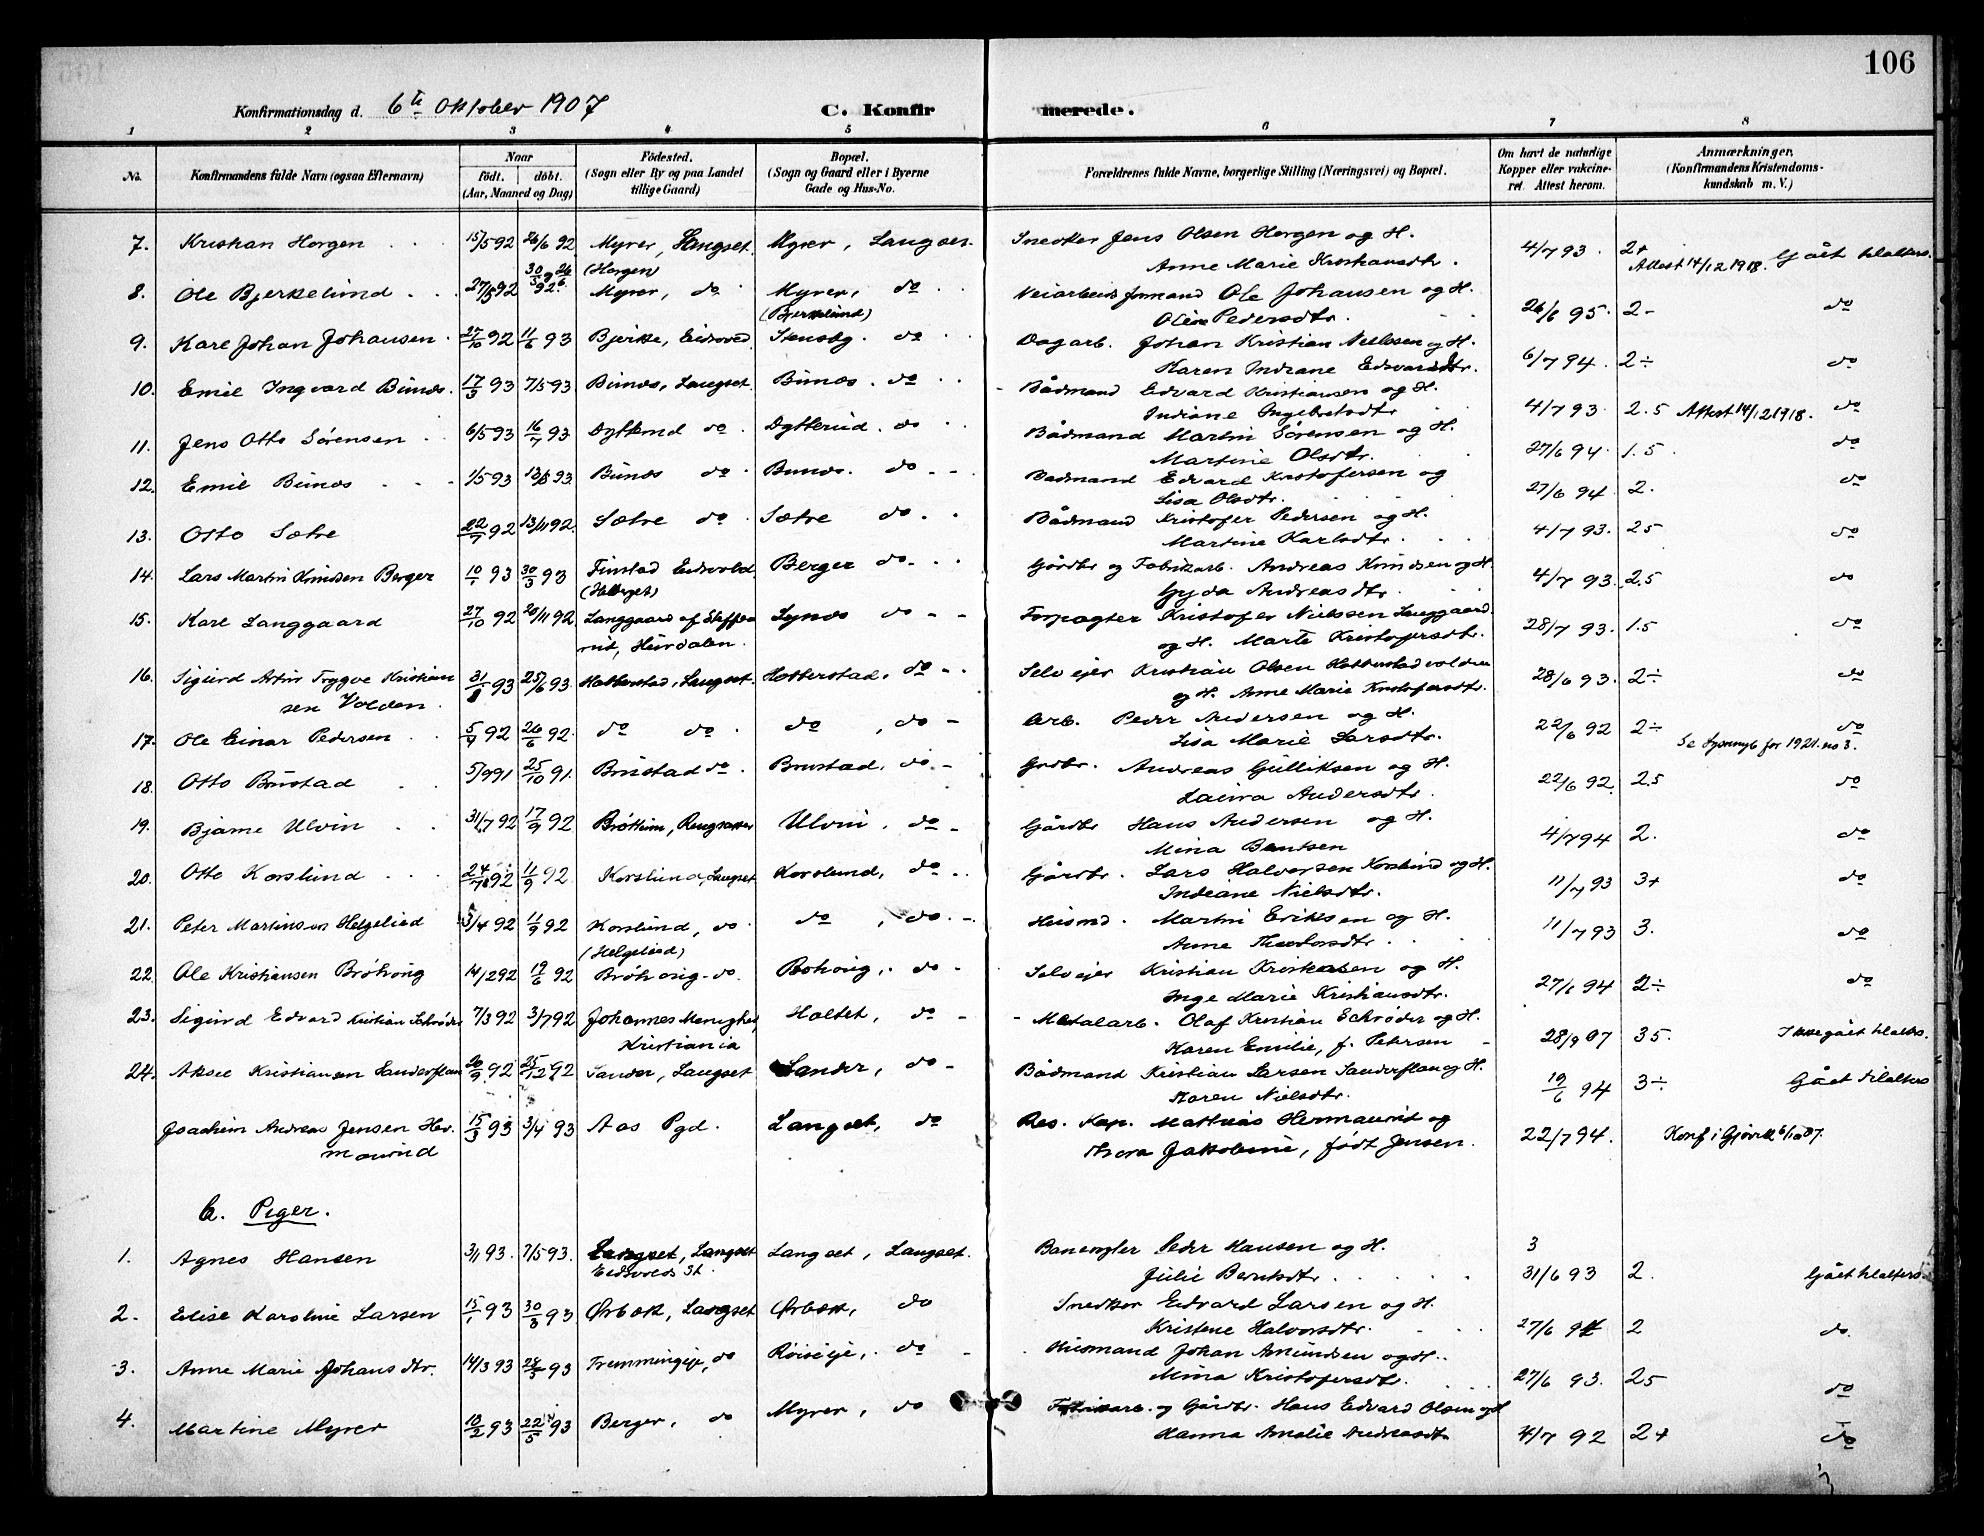 106
Konfirmationsdag d. 6te Oktober 1907 C. Konfirmerede.
1 2 3 4 5 6 7 8
No. Konfirmandens fulde Navn (ogsaa Efternavn) Naar født. døbt. (Aar, Maaned og Dag) Fødested. (Sogn eller By og paa Landet tillige Gaard) Bopæl. (Sogn og Gaard eller i Byerne Gade og Hus-No. Forældrenes fulde Navne, borgerlige Stilling (Næringsvei) og Bopæl. Om havt de naturlige Kopper eller vakcineret. Attest herom. Anmærkninger. (Konfirmandens Kristendomskundskab m. V.)
7. Kristian Horgen 15/5 92 26/6 92 Myrer, Langset (Horgen) Myrer, Langset. Snedker Jens Olsen Horgen og H.
Anne Marie Kristiansdtr. 4/7 93. 2+ Attest 14/12 1918. Gået til alters.
8. Ole Bjerkelund 27/5 92 26/6 92 Myrer, do Myrer, do (Bjerkelund) Veiarbeidsformand Ole Johansen og H.
Oline Pedersdtr. 26/6 95. 2- do
9. Karl Johan Johansen 25/10 92 11/6 93 Bjerke, Eidsvold Stensbg. do Dagarb. Johan Kristian Nielssen og H.
Karen Indiane Edvardsdtr. 6/7 94. 2÷ do
10. Emil Ingvard Bunæs. 17/3 93 7/5 93 Bunæs, Langset. Bunæs. do Bådmand Edvard Kristiansen og H.
Indiane Ingebretsdtr 4/7 93. 2.5 Attest 14/12 1918. do
11. Jens Otto Sørensen 6/5 93 16/7 93 Dytterud do Dytterud. do Bådmand Martin Sørensen og H.
Martine Olsdtr. 27/6 94. 1.5 do
12. Emil Bunæs 1/5 93 13/8 93. Bunæs do Bunæs. do Bådmand Edvard Kristofersen og
Lisa Olsdtr. 27/6 94. 2. do
13. Otto Sætre 22/9 92 13/11 92. Sætre do Sætre do Bådmand Kristofer Pedersen og H.
Martine Karlsdtr. 4/7 93. 25 do
14. Lars Martin Knudsen Berger 10/1 93 30/3 93 Finstad Eidsvold (Helberget) Berger do Gårdbr og Fabrikarb. Andreas Knudsen og H.
Gyda Andreasdtr. 4/7 93. 2.5 do
15. Karl Langgaard 27/10 92 20/11 92 Langgaard af Steffensrud, Hurdalen. Lynæs do Forpagter Kristofer Nielssen Langgaard
og H. Marte Kristofersdtr. 28/7 93. 1.5 do
16. Sigurd Artur Trygve Kristiansen Volden. 31/3 93 25/6 93. Hatterstad, Langset. Hatterstad, do Selveier Kristian Olsen Hatterstadvolden
og H. Anne Marie Kristofersdtr. 28/6 93. 2÷ do
17. Ole Einar Pedersen 5/4 92 26/6 92. do do do, do Arb. Peder Andersen og H.
Lisa Marie Larsdtr. 22/6 92 2÷ do
Se for 1921. no 3.
18. Otto Brustad 5/9 91 25/10 91. Brustad do Brustad. do Grdbr. Andreas Gulliksen og H.
Laura Andersdtr. 22/6 92. 2.5 do
19. Bjarne Ulvin 31/7 92 17/9 92 Brøttum, Ringsaker Ulvin, do Gårdbr Hans Andersen og H.
Mina Bentsen 4/7 94 2. do
20. Otto Korslund 24/7 92 11/9 92 Korslund, Langset Korslund, do Gårdbr. Lars Halvorsen Korslund og H.
Indiane Nielsdtr. 11/7 93 3+ do
21. Peter Martinsen Helgelied 3/4 92 11/9 92 Korslund, do (Helgelied) do, do Husmd. Martin Eriksen og H.
Anne Theodorsdtr. 11/7 93 3. do
22. Ole Kristiansen Brøhoug 14/2 92 19/6 92 Brøhoug do Brohoug, do Selveier Kristian Kristiansen og H.
Inge Marie Kristiansdtr. 27/6 94 2÷ do
23. Sigurd Edvard Kristian Schrøder 7/3 92 3/7 92 Johannes Menighed Kristiania Holtet, do Metalarb. Olaf Kristian Schrøder og H.
Karen Emilie, f. Petersen 28/9 07 35. Ikke gået til alters.
24. Aksel Kristiansen Sanderflan 20/9 92 25/12 92 Sander, Langset Sander, do Bådmand Kristian Larsen Sanderflan og H.
Karen Nielsdtr. 19/6 94 3÷ Gået til alters
Joachim Andreas Jensen Hermanrud 15/3 93 3/4 93 Aas Pgd. Langset, do Res. Kap. Mathias Hermanrud og
Thora Jakobine, født Jensen. 22/7 94. Konf. i Gjøvik 6/10 07.
b. Piger.
1. Agnes Hansen 3/1 93. 7/5 93. Langset, Langset Eidsvolds St. Langset, Langset. Banevogter Peder Hansen og H.
Julie Berntsdtr. 3
31/6 93 2. Gået til alters.
2. Elise Karoline Larsen 15/1 93 30/3 93 Ørbæk, Langset Ørbæk, do Snedker Edvard Larsen og H.
Kristine Halvorsdtr. 27/6 94 2 do.
3. Anne Marie Johansdtr. 14/3 93 28/5 93 Tremmingeje, do Røiseje, do Husmand Johan Amundsen og H.
Mina Kristofersdtr. 27/6 93. 25 do
4. Martine Myrer 10/2 93 22/5 93 Berger, do Myrer, do Fabrikarb. og Gårdbr. Hans Edvard Olsen og H
Hanna Amalie Andreasdtr 4/7 92 2+ do